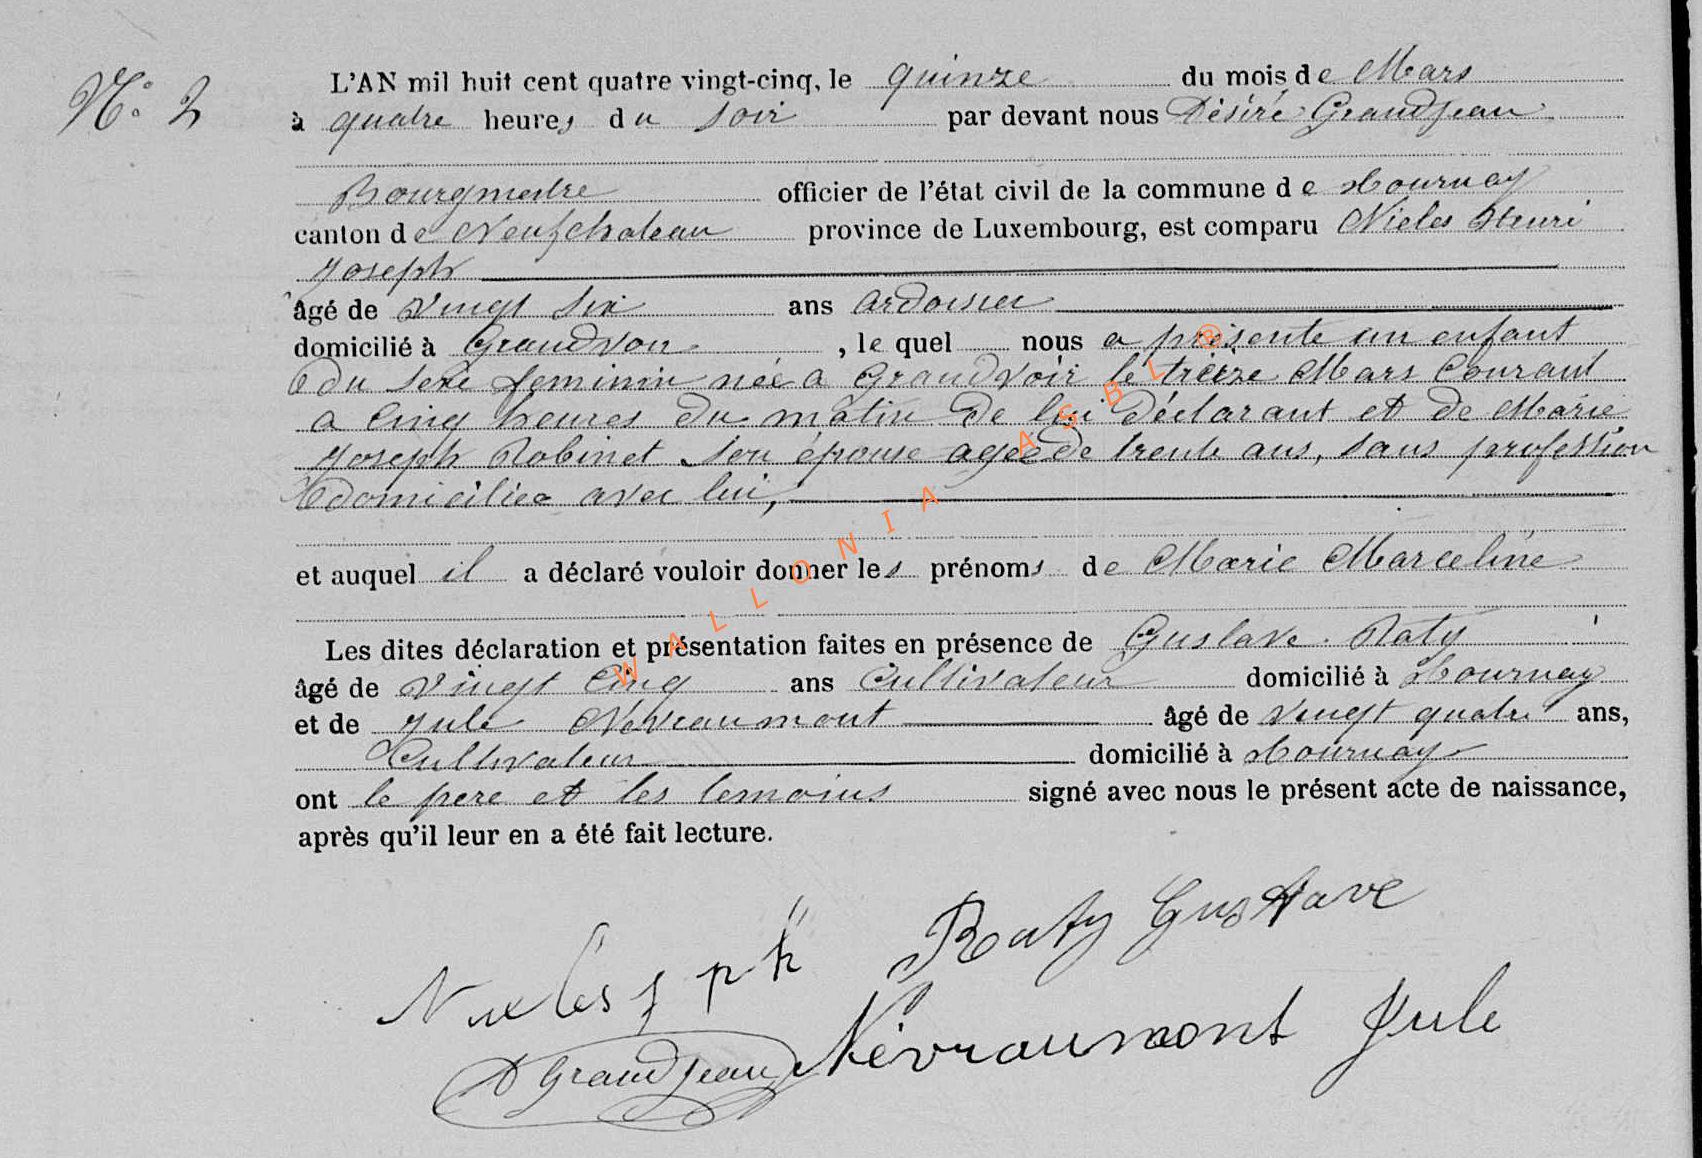 N° 2
L'AN mil huit cent quatre vingt-cinq, le quinze du mois de Mars
à quatre heures du soir par devant nous Désiré Grandjean
Bourgmestre officier de l'état civil de la commune de Tournay
canton de Neufchateau province de Luxembourg, est comparu Nicles Henri
Joseph
âgé de vingt six ans ardoisier
domicilié à Grandvoir, le quel nous a présenté un enfant
du sexe feminin née a Grandvoir le treize Mars Courant
a Cinq heures du matin de lui déclarant et de Marie
Joseph Robinet son épouse agée de trente ans, sans profession
domiciliée avec lui,
et auquel il a déclaré vouloir donner les prénoms de Marie Marceline
Les dites déclaration et présentation faites en présence de Gustave Raty
âgé de vingt Cinq ans Cultivateur domicilié à Tournay
et de Jule Nevraumont âgé de vingt quatre ans,
Cultivateur domicilié à Tournay
ont le pere et les temoins signé avec nous le présent acte de naissance,
après qu'il leur en a été fait lecture.
Raty Gustave
D Grandjean Névraumont Jule
WALLONIA ASBL ®